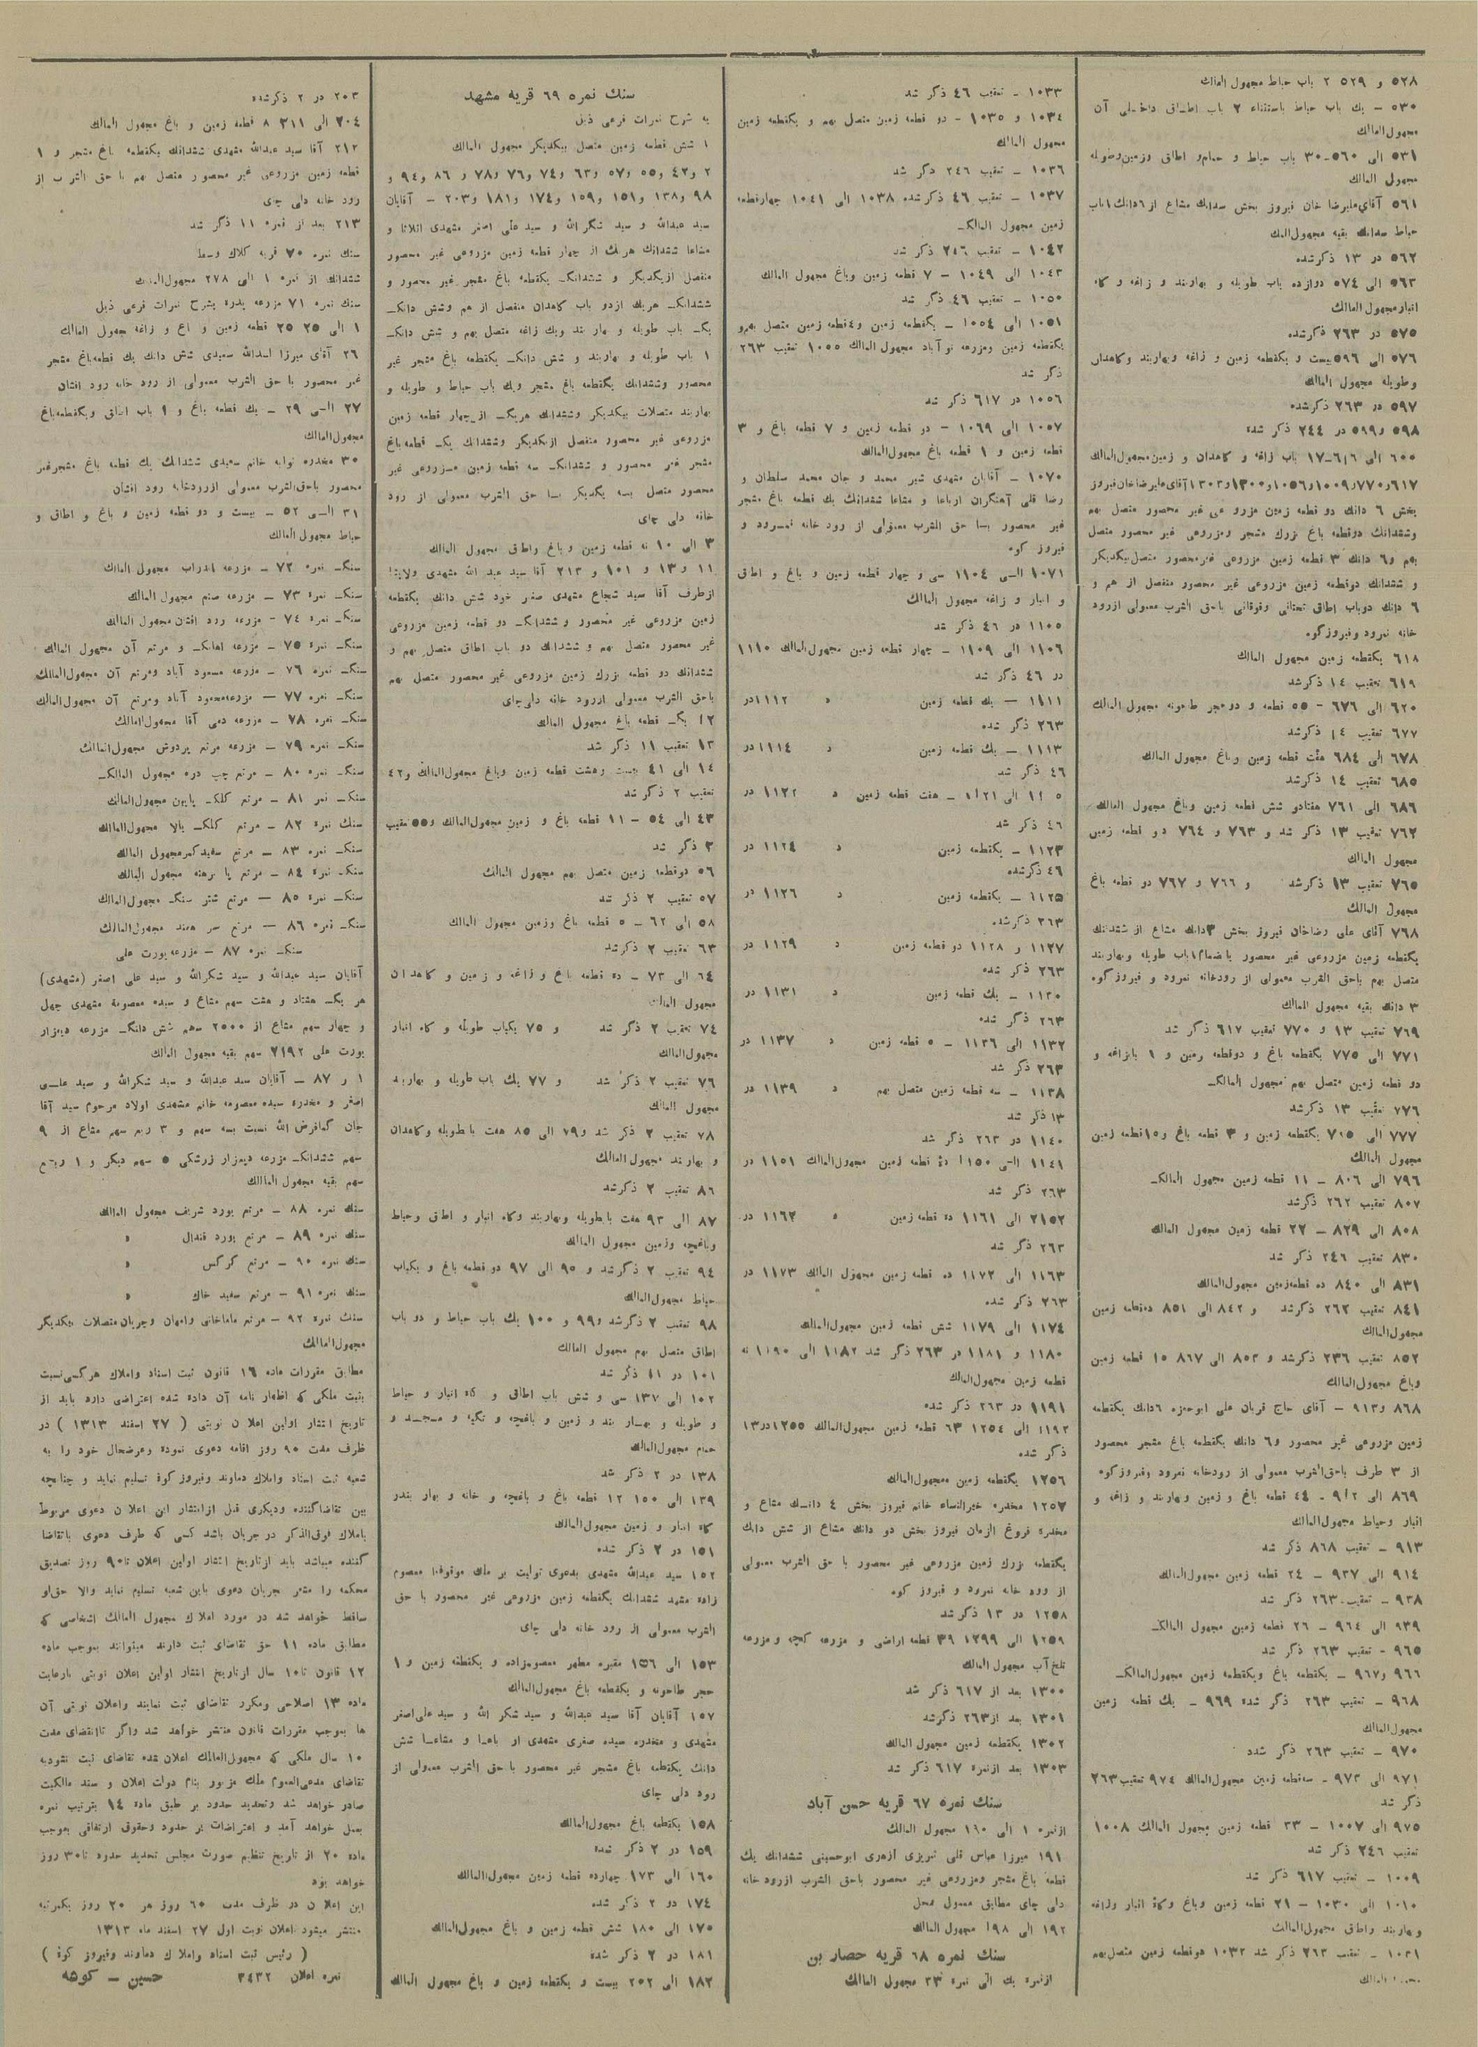 ۵۲۸ و ۵۲۹ ۲ باب حیاط مجهول المالک
۵۳۰ – یک باب حیاط باستثناء ۲ باب اطاق داخلی آن
مجهول المالک
۵۳۱ الی ۵۶۰-۳۰ باب حیاط و حمام و اطاق وزمین وطویله
مجهول المالک
۵۶۱ آقای علیرضا خان فیروز بخش سدانک مشاع از ۶دانک ۱باب
حیاط سدانک بقیه مجهول المالک
۵۶۲ در ۱۳ ذکرشده
۵۶۳ الی ۵۷۴ دوازده باب طویله و بهاربند و زاغه و کاه
انبار مجهول المالک
۵۷۵ در ۲۶۳ ذکرشده
۵۷۶ الی ۵۹۶ بیست و یکقطعه زمین و زاغه وبهاربند وکاهدان
وطویله مجهول المالک
۵۹۷ در ۲۶۳ ذکرشده
۵۹۸ و۵۹۹ در ۲۴۴ ذکر شده
۶۰۰ الی ۶۱۶-۱۷ باب زاغه و کاهدان و زمین مجهول المالک
۶۱۷و۷۷۰و۱۰۰۹و۱۰۵۶و۱۳۰۰و۱۳۰۳آقای علیرضاخان فیروز
بخش ۶ دانک دو قطعه زمین مزروعی غیر محصور متصل بهم
وششدانک دوقطعه باغ بزرک مشجر ومزروعی غیر محصور متصل
بهم و۶ دانک ۳ قطعه زمین مزروعی غیرمحصور متصل بیکدیگر
و ششدانک دوقطعه زمین مزروعی غیر محصور منفصل از هم و
۶ دانک دوباب اطاق تحتانی وفوقانی باحق الشرب معمولی ازرود
خانه نمرود وفیروزکوه
۶۱۸ یکقطعه زمین مجهول المالک
۶۱۹ تعقیب ۱۴ ذکرشد
۶۲۰ الی ۶۷۶ – ۵۵ قطعه و دوحجر طاحونه مجهول المالک
۶۷۷ تعقیب ۱۴ ذکرشد
۶۷۸ الی ۶۸۴ هفت قطعه زمین وباغ مجهول المالک
۶۸۵ تعقیب ۱۴ ذکرشد
۶۸۶ الی ۷۶۱ هفتادو شش قطعه زمین وباغ مجهول المالک
۷۶۲ تعقیب ۱۳ ذکر شد و ۷۶۳ و ۷۶۴ دو قطعه زمین
مجهول المالک
۷۶۵ تعقیب ۱۳ ذکرشد و ۷۶۶ و ۷۶۷ دو قطعه باغ
مجهول المالک
۷۶۸ آقای علی رضاخان فیروز بخش ۳دانک مشاع از ششدانک
یکقطعه زمین مزروعی غیر محصور باضمام۱باب طویله وبهاربند
متصل بهم باحق الشرب معمولی از رودخانه نمرود و فیروزکوه
۳ دانک بقیه مجهول المالک
۷۶۹ تعقیب ۱۳ و ۷۷۰ تعقیب ۶۱۷ ذکر شد
۷۷۱ الی ۷۷۵ یکقطعه باغ و دوقطعه زمین و ۱ بابزاغه و
دو قطعه زمین متصل بهم مجهول المالک
۷۷۶ تعقیب ۱۳ ذکرشد
۷۷۷ الی یکقطعه زمین و ۳ قطعه باغ و۱۵قطعه زمین
مجهول المالک
۷۹۶ الی ۸۰۶ – ۱۱ قطعه زمین مجهول المالک
۸۰۷ تعقیب ۲۶۲ ذکرشد
۸۰۸ الی ۸۲۹ – ۲۲ قطعه زمین مجهول المالک
۸۳۰ تعقیب ۲۴۶ ذکر شد
۸۳۱ الی ۸۴۰ ده قطعه زمین مجهول المالک
۸۴۱ تعقیب ۲۶۲ ذکرشد و ۸۴۲ الی ۸۵۱ ده قطعه زمین
مجهول المالک
۸۵۲ تعقیب ۲۳۶ ذکرشد و ۸۵۳ الی ۸۶۷ ۱۵ قطعه زمین
وباغ مجهول المالک
۸۶۸ و۹۱۳ – آقای حاج قربان علی ابوحمزه ۶دانک یکقطعه
زمین مزروعی غیر محصور و۶ دانک یکقطعه باغ مشجر محصور
از ۳ طرف باحق الشرب معمولی از رودخانه نمرود وفیروزکوه
۸۶۹ الی ۹۱۲ – ۴۴ قطعه باغ و زمین وبهاربند و زاغه و
انبار وحیاط مجهول المالک
۹۱۳ – تعقیب ۸۶۸ ذکر شد
۹۱۴ الی ۹۳۷ – ۲۴ قطعه زمین مجهول المالک
۹۳۸ – تعقیب ۲۶۳ ذکر شد
۹۳۹ الی ۹۶۴ – ۲۶ قطعه زمین مجهول المالک
۹۶۵ – تعقیب ۲۶۳ ذکر شد
۹۶۶ و۹۶۷ – یکقطعه باغ ویکقطعه زمین مجهول المالک
۹۶۸ – تعقیب ۲۶۳ ذکر شده ۹۶۹ – یک قطعه زمین
مجهول المالک
۹۷۰ – تعقیب ۲۶۳ ذکر شده
۹۷۱ الی ۹۷۳ – سه قطعه زمین مجهول المالک ۹۷۴ تعقیب ۲۶۳
ذکر شد
۹۷۵ الی ۱۰۰۷ – ۳۳ قطعه زمین مجهول المالک ۱۰۰۸
تعقیب ۲۴۶ ذکر شد
۱۰۰۹ – تعقیب ۶۱۷ ذکر شد
۱۰۱۰ الی ۱۰۳۰ – ۲۱ قطعه زمین وباغ وکاه انبار وزاغه
وبهاربند واطاق مجهول المالک
۱۰۳۱ – تعقیب ۲۶۳ ذکر شد ۱۰۳۲ دوقطعه زمین متصل بهم
مجهول المالک
۱۰۳۳ – تعقیب ۴۶ ذکر شد
۱۰۳۴ و ۱۰۳۵ – دو قطعه زمین متصل بهم و یکقطعه زمین
مجهول المالک
۱۰۳۶ – تعقیب ۲۴۶ ذکر شد
۱۰۳۷ – تعقیب ۴۶ ذکرشده ۱۰۳۸ الی ۱۰۴۱ چهارقطعه
زمین مجهول المالک
۱۰۴۲ – تعقیب ۲۴۶ ذکر شد
۱۰۴۳ الی ۱۰۴۹ – ۷ قطعه زمین وباغ مجهول المالک
۱۰۵۰ – تعقیب ۴۶ ذکر شد
۱۰۵۱ الی ۱۰۵۴ – یکقطعه زمین و۴قطعه زمین متصل بهم و
یکقطعه زمین ومزرعه نوآباد مجهول المالک ۱۰۵۵ تعقیب ۲۶۳
ذکر شد
۱۰۵۶ در ۶۱۷ ذکر شد
۱۰۵۷ الی ۱۰۶۹ – دو قطعه زمین و ۷ قطعه باغ و ۳
قطعه زمین و ۱ قطعه باغ مجهول المالک
۱۰۷۰ – آقایان مشهدی شیر محمد و جان محمد سلطان و
رضا قلی آهنگران ارباعا و مشاعا ششدانک یک قطعه باغ مشجر
غیر محصور با حق الشرب معمولی از رود خانه نمرود و
فیروز کوه
۱۰۷۱ الی ۱۱۰۴ سی و چهار قطعه زمین و باغ و اطاق
و انبار و زاغه مجهول المالک
۱۱۰۵ در ۴۶ ذکر شد
۱۱۰۶ الی ۱۱۰۹ – چهار قطعه زمین مجهول المالک ۱۱۱۰
در ۴۶ ذکر شد
۱۱۱۱ – یک قطعه زمین » ۱۱۱۲ در
۲۶۳ ذکر شده
۱۱۱۳ – یک قطعه زمین » ۱۱۱۴ در
۴۶ ذکر شد
۱۱۱۵ الی ۱۱۲۱ – هفت قطعه زمین » ۱۱۲۲ در
۴۶ ذکر شد
۱۱۲۳ – یکقطعه زمین » ۱۱۲۴ در
۴۶ ذکرشده
۱۱۲۵ – یکقطعه زمین » ۱۱۲۶ در
۲۶۳ ذکرشده
۱۱۲۷ و ۱۱۲۸ دو قطعه زمین » ۱۱۲۹ در
۲۶۳ ذکر شده
۱۱۳۰ – یک قطعه زمین » ۱۱۳۱ در
۲۶۳ ذکر شده
۱۱۳۲ الی ۱۱۳۶ – ۵ قطعه زمین » ۱۱۳۷ در
۲۶۳ ذکر شد
۱۱۳۸ – سه قطعه زمین متصل بهم » ۱۱۳۹ در
۱۳ ذکر شد
۱۱۴۰ در ۲۶۳ ذکر شد
۱۱۴۱ الی ۱۱۵۰ ده قطعه زمین مجهول المالک ۱۱۵۱ در
۲۶۳ ذکر شد
۲۱۵۲ الی ۱۱۶۱ ده قطعه زمین » ۱۱۶۲ در
۲۶۳ ذکر شد
۱۱۶۳ الی ۱۱۷۲ ده قطعه زمین مجهول المالک ۱۱۷۳ در
۲۶۳ ذکر شده
۱۱۷۴ الی ۱۱۷۹ شش قطعه زمین مجهول المالک
۱۱۸۰ و ۱۱۸۱ در ۲۶۳ ذکر شد ۱۱۸۲ الی ۱۱۹۰ نه
قطعه زمین مجهول المالک
۱۱۹۱ در ۲۶۳ ذکر شده
۱۱۹۲ الی ۱۲۵۴ ۶۳ قطعه زمین مجهول المالک ۱۲۵۵در۱۳
ذکر شده
۱۲۵۶ یکقطعه زمین مجهول المالک
۱۲۵۷ مخدره خیرالنساء خانم فیروز بخش ۴ دانک مشاع و
مخدره فروغ الزمان فیروز بخش دو دانک مشاع از شش دانک
یکقطعه بزرک زمین مزروعی غیر محصور با حق الشرب معمولی
از رود خانه نمرود و فیروز کوه
۱۲۵۸ در ۱۳ ذکر شد
۱۲۵۹ الی ۱۲۹۹ ۳۹ قطعه اراضی و مزرعه کمچه و مزرعه
تلخ آب مجهول المالک
۱۳۰۰ بعد از ۶۱۷ ذکر شد
۱۳۰۱ بعد از۲۶۳ ذکرشد
۱۳۰۲ یکقطعه زمین مجهول المالک
۱۳۰۳ بعد ازنمره ۶۱۷ ذکر شد
سنک نمره ۶۷ قریه حسن آباد
ازنمره ۱ الی ۱۶۰ مجهول المالک
۱۹۱ میرزا عباس قلی تبریزی ازهری ابوحسینی ششدانک یک
قطعه باغ مشجر ومزروعی غیر محصور باحق الشرب ازرود خانه
دلی چای مطابق معمول محل
۱۹۲ الی ۱۹۸ مجهول المالک
سنک نمره ۶۸ قریه حصار بن
ازنمره یک الی نمره ۲۳ مجهول المالک
سنک نمره ۶۹ قریه مشهد
به شرح نمرات فرعی ذیل
۱ شش قطعه زمین متصل بیکدیگر مجهول المالک
۲ و۴۲ و۵۵ و۵۷ و۶۳ و۷۴ و۷۶ و۷۸ و ۸۶ و۹۴ و
۹۸ و۱۳۸ و۱۵۱ و۱۵۹ و۱۷۴ و۱۸۱ و۲۰۳ – آقایان
سید عبدالله و سید شکرالله و سید علی اصغر مشهدی اثلاثا و
مشاعا ششدانک هریک از چهار قطعه زمین مزروعی غیر محصور
منفصل ازیکدیگر و ششدانک یکقطعه باغ مشجر غیر محصور و
ششدانک هریک ازدو باب کاهدان منفصل از هم وشش دانک
یک باب طویله و بهار بند ویک زاغه متصل بهم و شش دانک
۱ باب طویله و بهاربند و شش دانک یکقطعه باغ مشجر غیر
محصور وششدانک یکقطعه باغ مشجر ویک باب حیاط و طویله و
بهاربند متصلات بیکدیگر وششدانک هریک از چهار قطعه زمین
مزروعی غیر محصور منفصل ازیکدیگر وششدانک یک قطعه باغ
مشجر غیر محصور و ششدانک سه قطعه زمین مزروعی غیر
محصور متصل به یکدیگر با حق الشرب معمولی از رود
خانه دلی چای
۳ الی ۱۰ نه قطعه زمین و باغ واطاق مجهول المالک
۱۱ و۱۳ و ۱۰۱ و ۲۱۳ آقا سید عبد الله مشهدی ولایتا
ازطرف آقا سید شجاع مشهدی صغیر خود شش دانک یکقطعه
زمین مزروعی غیر محصور و ششدانک دو قطعه زمین مزروعی
غیر محصور متصل بهم و ششدانک دو باب اطاق متصل بهم و
ششدانک دو قطعه بزرک زمین مزروعی غیر محصور متصل بهم
باحق الشرب معمولی ازرود خانه دلی چای
۱۲ یک قطعه باغ مجهول المالک
۱۳ تعقیب ۱۱ ذکر شد
۱۴ الی ۴۱ بیست وهشت قطعه زمین وباغ مجهول المالک و۴۲
تعقیب ۲ ذکر شد
۴۳ الی ۵۴ – ۱۱ قطعه باغ و زمین مجهول المالک و۵۵تعقیب
۲ ذکر شد
۵۶ دوقطعه زمین متصل بهم مجهول المالک
۵۷ تعقیب ۲ ذکر شد
۵۸ الی ۶۲ – ۵ قطعه باغ وزمین مجهول المالک
۶۳ تعقیب ۲ ذکرشد
۶۴ الی ۷۳ – ده قطعه باغ و زاغه و زمین و کاهدان
مجهول المالک
۷۴ تعقیب ۲ ذکر شد و ۷۵ یکباب طویله و کاه انبار
مجهول المالک
۷۶ تعقیب ۲ ذکر شد و ۷۷ یک باب طویله و بهاربند
مجهول المالک
۷۸ تعقیب ۲ ذکر شد و۷۹ الی ۸۵ هفت با طویله وکاهدان
و بهاربند مجهول المالک
۸۶ تعقیب ۲ ذکرشد
۸۷ الی ۹۳ هفت باطویله وبهاربند وکاه انبار و اطاق وحیاط
وباغچه وزمین مجهول المالک
۹۴ تعقیب ۲ ذکرشد و ۹۵ الی ۹۷ دو قطعه باغ و یکباب
حیاط مجهول المالک
۹۸ تعقیب ۲ ذکرشد و۹۹ و ۱۰۰ یک باب حیاط و دو باب
اطاق متصل بهم مجهول المالک
۱۰۱ در ۱۱ ذکر شد
۱۰۲ الی ۱۳۷ سی و شش باب اطاق و کاه انبار و حیاط
و طویله و بهار بند و زمین و باغچه و تکیه و مسجد و
حمام مجهول المالک
۱۳۸ در ۲ ذکر شد
۱۳۹ الی ۱۵۰ ۱۲ قطعه باغ و باغچه و خانه و بهار بندر
کاه انبار و زمین مجهول المالک
۱۵۱ در ۲ ذکر شده
۱۵۲ سید عبدالله مشهدی بدعوی تولیت بر ملک موقوفه معصوم
زاده مشهد ششدانک یکقطعه زمین مزروعی غیر محصور با حق
الشرب معمولی از رود خانه دلی چای
۱۵۳ الی ۱۵۶ مقبره مطهر معصومزاده و یکقطعه زمین و ۱
حجر طاحونه و یکقطعه باغ مجهول المالک
۱۵۷ آقایان آقا سید عبدالله و سید شکر الله و سید علی اصغر
مشهدی و مخدره سیده صغری مشهدی ار باعا و مشاعا شش
دانک یکقطعه باغ مشجر غیر محصور با حق الشرب معمولی از
رود دلی چای
۱۵۸ یکقطعه باغ مجهول المالک
۱۵۹ در ۲ ذکر شده
۱۶۰ الی ۱۷۳ چهارده قطعه زمین مجهول المالک
۱۷۴ در ۲ ذکر شده
۱۷۵ الی ۱۸۰ شش قطعه زمین و باغ مجهول المالک
۱۸۱ در ۲ ذکر شده
۱۸۲ الی ۲۵۲ بیست و یکقطعه زمین و باغ مجهول المالک
۲۰۳ در ۲ ذکرشده
۲۰۴ الی ۲۱۱ ۸ قطعه زمین و باغ مجهول المالک
۲۱۲ آقا سید عبدالله مشهدی ششدانک یکقطعه باغ مشجر و ۱
قطعه زمین مزروعی غیر محصور متصل بهم با حق الشرب از
رود خانه دلی چای
۲۱۳ بعد از نمره ۱۱ ذکر شد
سنک نمره ۷۰ قریه کلاک وسط
ششدانک از نمره ۱ الی ۲۷۸ مجهول المالک
سنک نمره ۷۱ مزرعه یدره بشرح نمرات فرعی ذیل
۱ الی ۲۵ ۲۵ قطعه زمین و باغ و زاغه مجهول المالک
۲۶ آقای میرزا اسدالله سعیدی شش دانک یک قطعه باغ مشجر
غیر محصور با حق الشرب معمولی از رود خانه رود افشان
۲۷ الی ۲۹ – یک قطعه باغ و ۱ باب اطاق ویکقطعه باغ
مجهول المالک
۳۰ مخدره نوابه خانم سعیدی ششدانک یک قطعه باغ مشجرغیر
محصور باحق الشرب معمولی ازرودخانه رود افشان
۳۱ الی ۵۲ – بیست و دو قطعه زمین و باغ و اطاق و
حیاط مجهول المالک
سنک نمره ۷۲ – مزرعه اندراب مجهول المالک
سنک نمره ۷۳ – مزرعه صنم مجهول المالک
سنک نمره ۷۴ – مزرعه رود افشان مجهول المالک
سنک نمره ۷۵ – مزرعه اهانک و مرتع آن مجهول المالک
سنک نمره ۷۶ – مزرعه مسعود آباد ومرتع آن مجهول المالک
سنک نمره ۷۷ – مزرعه محمود آباد ومرتع آن مجهول المالک
سنک نمره ۷۸ – مزرعه دمی آقا مجهول المالک
سنک نمره ۷۹ – مزرعه مرتع پردوش مجهول المالک
سنک نمره ۸۰ – مرتع چپ دره مجهول المالک
سنک نمر ۸۱ – مرتع کلک پایین مجهول المالک
سنک نمره ۸۲ – مرتع کلک بالا مجهول المالک
سنک نمره ۸۳ – مرتع سفید کمر مجهول المالک
سنک نمره ۸۴ – مرتع پا برهنه مجهول المالک
سنک نمره ۸۵ – مرتع شتر سنک مجهول المالک
سنک نمره ۸۶ – مرتع سر هند مجهول المالک
سنک نمره ۸۷ – مزرعه یورت علی
آقایان سید عبدالله و سید شکرالله و سید علی اصغر (مشهدی)
هر یک هشتاد و هشت سهم مشاع و سیده معصومه مشهدی چهل
و چهار سهم مشاع از ۲۵۰۰ سهم شش دانک مزرعه دیمزار
یورت علی ۲۱۹۲ سهم بقیه مجهول المالک
۱ ر ۸۷ – آقایان سید عبدالله و سید شکرالله و سید علی
اصغر و مخدره سیده معصومه خانم مشهدی اولاد مرحوم سید آقا
جان کمافرض الله نسبت بسه سهم و ۳ ربع سهم مشاع از ۹
سهم ششدانک مزرعه دیمزار زرشکی ۵ سهم دیگر و ۱ ربع
سهم بقیه مجهول المالک
سنک نمره ۸۸ – مرتع یورد شریف مجهول المالک
سنک نمره ۸۹ – مرتع یورد قندال »
سنک نمره ۹۰ – مرتع کرکس »
سنک نمره ۹۱ – مرتع سفید خاک »
سنک نمره ۹۲ – مرتع ماماخانی وامهان وچربان متصلات بیکدیگر
مجهول المالک
مطابق مقررات ماده ۱۶ قانون ثبت اسناد واملاک هرکسی نسبت
بثبت ملکی که اظهار نامه آن داده شده اعتراضی دارد باید از
تاریخ انتشار اولین اعلان نوبتی ( ۲۷ اسفند ۱۳۱۳ ) در
ظرف مدت ۹۰ روز اقامه دعوی نموده وعرضحال خود را به
شعبه ثبت اسناد واملاک دماوند وفیروز کوه تسلیم نماید و چنانچه
بین تقاضاکننده ودیگری قبل ازانتشار این اعلان دعوی مربوط
باملاک فوق الذکر در جریان باشد کسی که طرف دعوی باتقاضا
کننده میباشد باید ازتاریخ انتشار اولین اعلان تا ۹۰ روز تصدیق
محکمه را مشعر بجریان دعوی باین شعبه تسلیم نماید والا حق او
ساقط خواهد شد در مورد املاک مجهول المالک اشخاصی که
مطابق ماده ۱۱ حق تقاضای ثبت دارند میتوانند بموجب ماده
۱۲ قانون تا ۱۰ سال ازتاریخ انتشار اولین اعلان نوبتی بارعایت
ماده ۱۳ اصلاحی ومکرر تقاضای ثبت نمایند واعلان نوبتی آن
ها بموجب مقررات قانون منتشر خواهد شد واگر تاانقضای مدت
۱۰ سال ملکی که مجهول المالک اعلان شده تقاضای ثبت نشود به
تقاضای مدعی العموم ملک مزبور بنام دولت اعلان و سند مالکیت
صادر خواهد شد وتحدید حدود بر طبق ماده ۱۴ بترتیب نمره
بعمل خواهد آمد و اعتراضات بر حدود وحقوق ارتفاقی بموجب
ماده ۲۰ از تاریخ تنظیم صورت مجلس تحدید حدود تا ۳۰ روز
خواهد بود
این اعلان در ظرف مدت ۶۰ روز هر ۲۰ روز یکمرتبه
منتشر میشود اعلان نوبت اول ۲۷ اسفند ماه ۱۳۱۳
( رئیس ثبت اسناد واملاک دماوند وفیروز کوه )
نمره اعلان ۳۴۳۲ حسین – کوشه